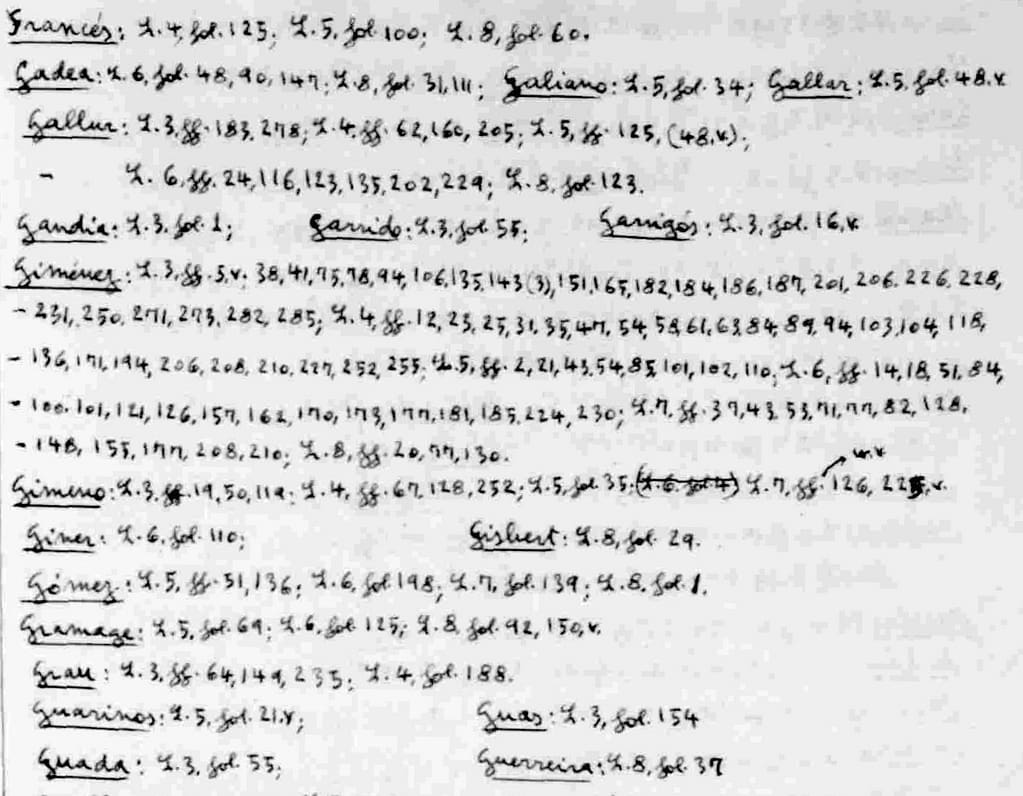 Francés: L.4, fol. 125; L.5, fol. 100; L.8, fol. 60.
Gadea: L.6, fol. 48, 90, 147; L.8, fol. 31, 111; Galiano: L.5, fol. 34; Gallar: L.5, fol. 48.v
Gallur: L.3, ff. 183, 278; L.4, ff. 62, 160, 205; L.5, ff. 125, (48.v);
- L.6, ff. 24, 116, 123, 135, 202, 229; L.8, fol. 123.
Gandia: L.3, fol. 1; Garrido: L.3, fol. 55; Garrigós: L.3, fol. 16,v
Giménez: L.3, ff. 5.v; 38, 41, 75, 78, 94, 106, 135, 143 (3), 151, 165, 182, 184, 186, 187, 201, 206, 226, 228,
- 231, 250, 271, 273, 282, 285; L.4, ff. 12, 23, 25, 31, 35, 47, 54, 58, 61, 63, 84, 89, 94, 103, 104, 118,
- 136, 171, 194, 206, 208, 210, 227, 252, 255; L.5, ff. 2, 21, 43, 54, 85, 101, 102, 110; L.6, ff. 14, 18, 51, 84,
- 100, 101, 121, 126, 157, 162, 170, 173, 177, 181, 185, 224, 230; L.7, ff. 37, 43, 53, 71, 77, 82, 128,
- 148, 155, 177, 208, 210; L.8, ff. 20, 77, 130.
Gimeno: L.3, ff. 19, 50, 119; L.4, ff. 67, 128, 252; L.5, fol. 35; (L.6, fol. 4) L.7, ff. 126, 225,v.
Giner: L.6, fol. 110; Gisbert: L.8, fol. 29.
Gómez: L.5, ff. 51, 136; L.6, fol. 198; L.7, fol. 139; L.8, fol. 1.
Gramage: L.5, fol. 69; L.6, fol. 125; L.8, fol. 92, 150,v.
Grau: L.3, ff. 64, 149, 235; L.4, fol. 188.
Guarinos: L.5, fol. 21.v; Guas: L.3, fol. 154
Guada: L.3, fol. 55; Guerreira: L.8, fol. 37